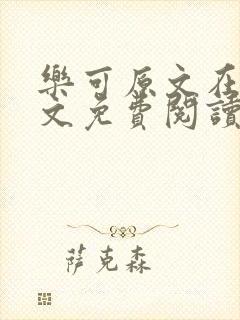 樂可原文在
文免費閱讀
萨克森